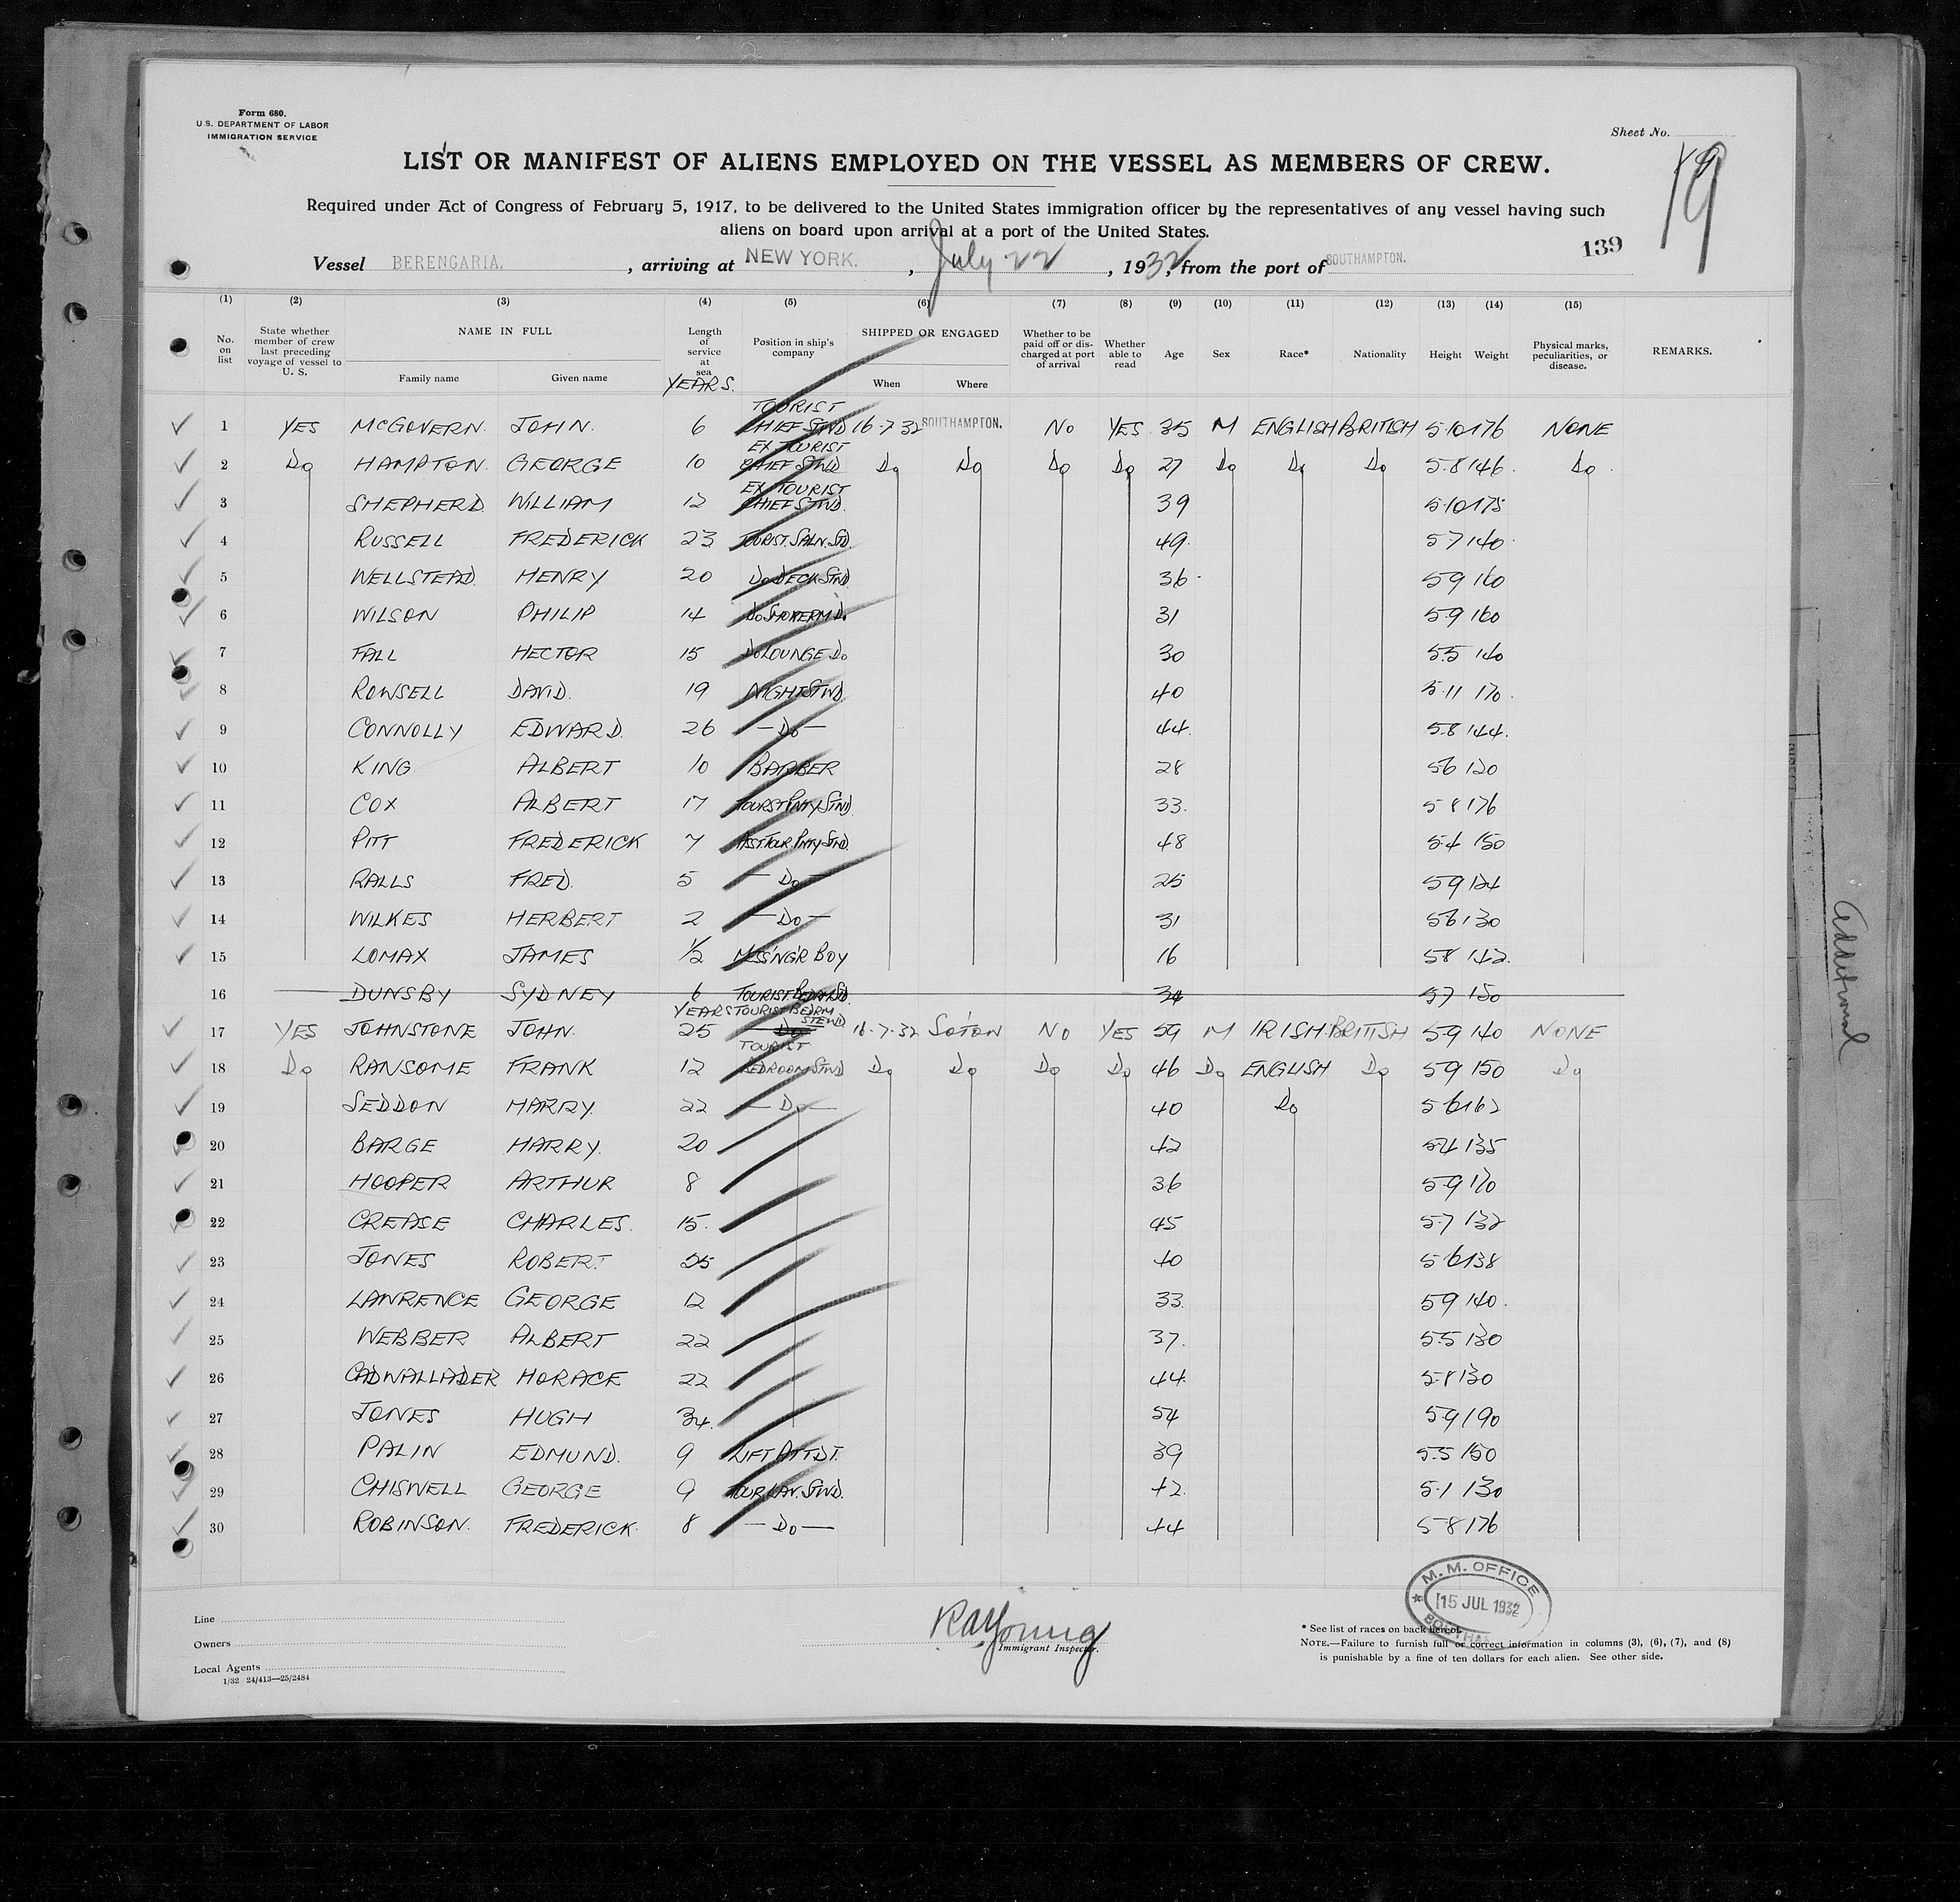 Form 680.
U.S. DEPARTMENT OF LABOR
IMMIGRATION SERVICE
Sheet No.
19
LIST OR MANIFEST OF ALIENS EMPLOYED ON THE VESSEL AS MEMBERS OF CREW.
Required under Act of Congress of February 5, 1917, to be delivered to the United States immigration officer by the representatives of any vessel having such
aliens on board upon arrival at a port of the United States.
139
Vessel BERENGARIA. , arriving at NEW YORK. , July 22 , 1932, from the port of SOUTHAMPTON.
(1) (2) (3) (4) (5) (6) (7) (8) (9) (10) (11) (12) (13) (14) (15)
No. on list State whether member of crew last preceding voyage of vessel to U. S. NAME IN FULL Family name Given name Length of service at sea YEARS. Position in ship's company SHIPPED OR ENGAGED When Where Whether to be paid off or discharged at port of arrival Whether able to read Age Sex Race* Nationality Height Weight Physical marks, peculiarities, or disease. REMARKS.
1 YES McGOVERN. JOHN. 6 TOURIST CHIEF STWD 16-7-32 SOUTHAMPTON. NO YES 35 M ENGLISH BRITISH 5-10 176 NONE
2 Do HAMPTON. GEORGE 10 EX TOURIST CHIEF STWD Do Do Do Do 27 Do Do Do 5-8 146. Do.
3 SHEPHERD. WILLIAM 12 EX TOURIST CHIEF STWD. 39 5-10 175
4 RUSSELL FREDERICK 23 TOURIST. SALN. STD. 49. 5-7 140.
5 WELLSTEAD. HENRY 20 Do DECK STWD. 36. 5-9 160
6 WILSON PHILIP 14 Do SMOKERM Do 31 5-9 160
7 FALL HECTOR 15 Do LOUNGE Do 30 5.5 140
8 ROWSELL DAVID. 19 NIGHT STWD. 40 5-11 170.
9 CONNOLLY EDWARD. 26 — Do — 44. 5-8 144.
10 KING ALBERT 10 BARBER 28 5-6 120
11 COX ALBERT 17 TOURST PNTY STWD 33. 5-8 176
12 PITT FREDERICK 7 ASST. TOUR PNTY STWD. 48 5-4 150
13 RALLS FRED. 5 — Do — 25 5-9 124
14 WILKES HERBERT 2 — Do — 31 5-6 130
15 LOMAX JAMES 1/2 MESS'NG'R BOY 16 5-8 142.
16 DUNSBY SYDNEY 6 TOURIST BEDRM SD. 34 5-7 150
17 YES JOHNSTONE JOHN. YEARS 25 TOURIST BEDRM STEWD Do 16-7-32 SO'TON NO YES 59 M IRISH. BRITISH 5-9 140 NONE
18 Do RANSOME FRANK 12 TOURIST BEDROOM STWD Do Do Do Do 46 Do ENGLISH Do 5-9 150 Do
19 SEDDON HARRY. 22 — Do — 40 Do 5-6 162
20 BARGE HARRY. 20 42 5-4 135
21 HOOPER ARTHUR 8 36 5-9 170
22 CREASE CHARLES. 15. 45 5-7 132
23 JONES ROBERT. 25 40 5-6 138
24 LAWRENCE GEORGE 12 33. 5-9 140.
25 WEBBER ALBERT 22 37. 5-5 130
26 CADWALLADER HORACE 22 44. 5-8 130
27 JONES HUGH 34. 54 5-9 190
28 PALIN EDMUND. 9 LIFT ATTDT. 39 5.5 150
29 CHISWELL GEORGE 9 TOUR. LAV. STWD. 42. 5-1 130
30 ROBINSON. FREDERICK. 8 — Do — 44 5-8 176
Additional
M. M. OFFICE
15 JUL 1932
Line
Owners
Local Agents
1/32 24/413—25/2484
R A Young
Immigrant Inspector.
* See list of races on back hereof.
NOTE.—Failure to furnish full or correct information in columns (3), (6), (7), and (8)
is punishable by a fine of ten dollars for each alien. See other side.